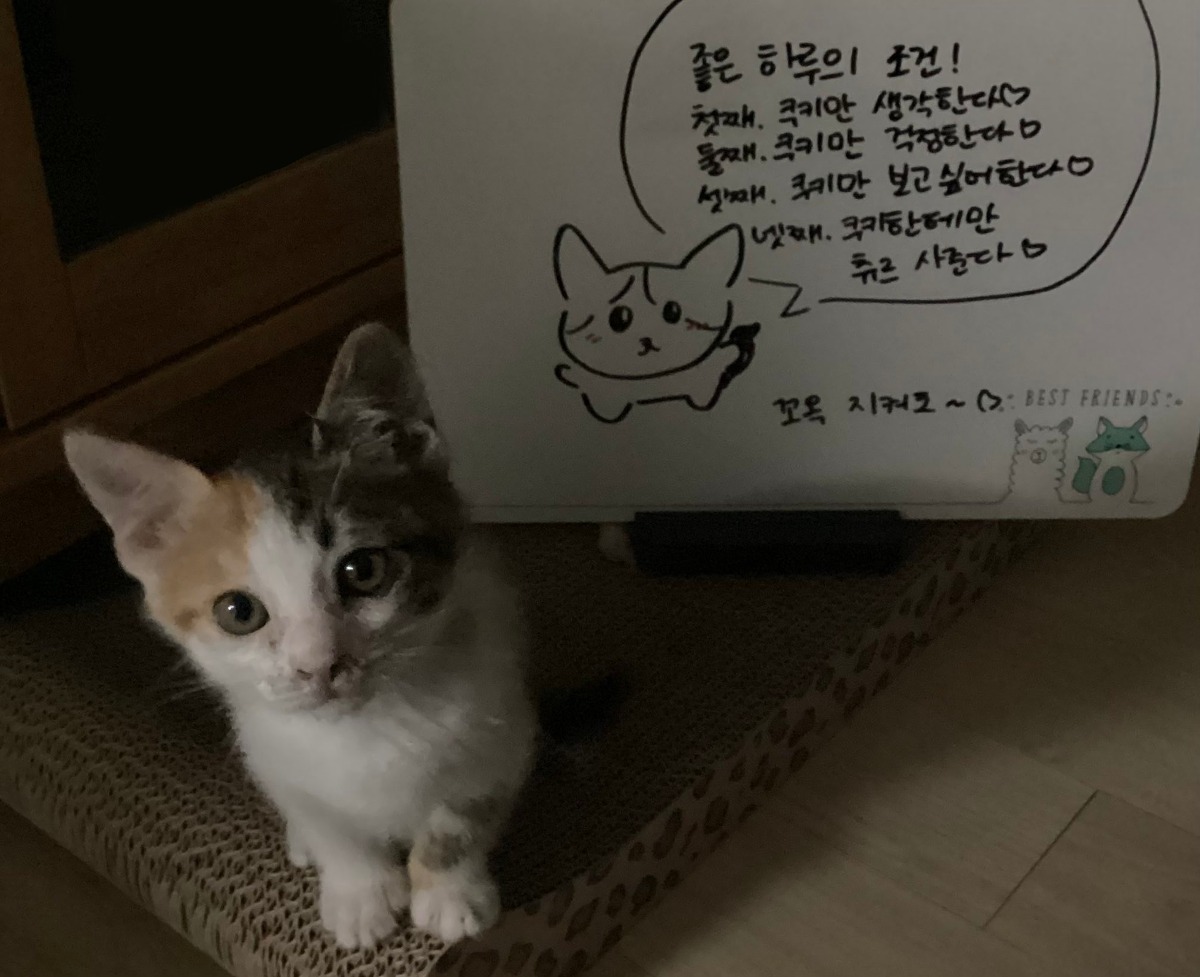 좋은 하루의 조건!
첫째. 쿠키만 생각한다♡
둘째. 쿠키만 걱정한다♡
셋째. 쿠키만 보고싶어한다♡
넷째. 쿠키한테만
츄르 사준다♡
꼬옥 지켜죠~♡
BEST FRIENDS